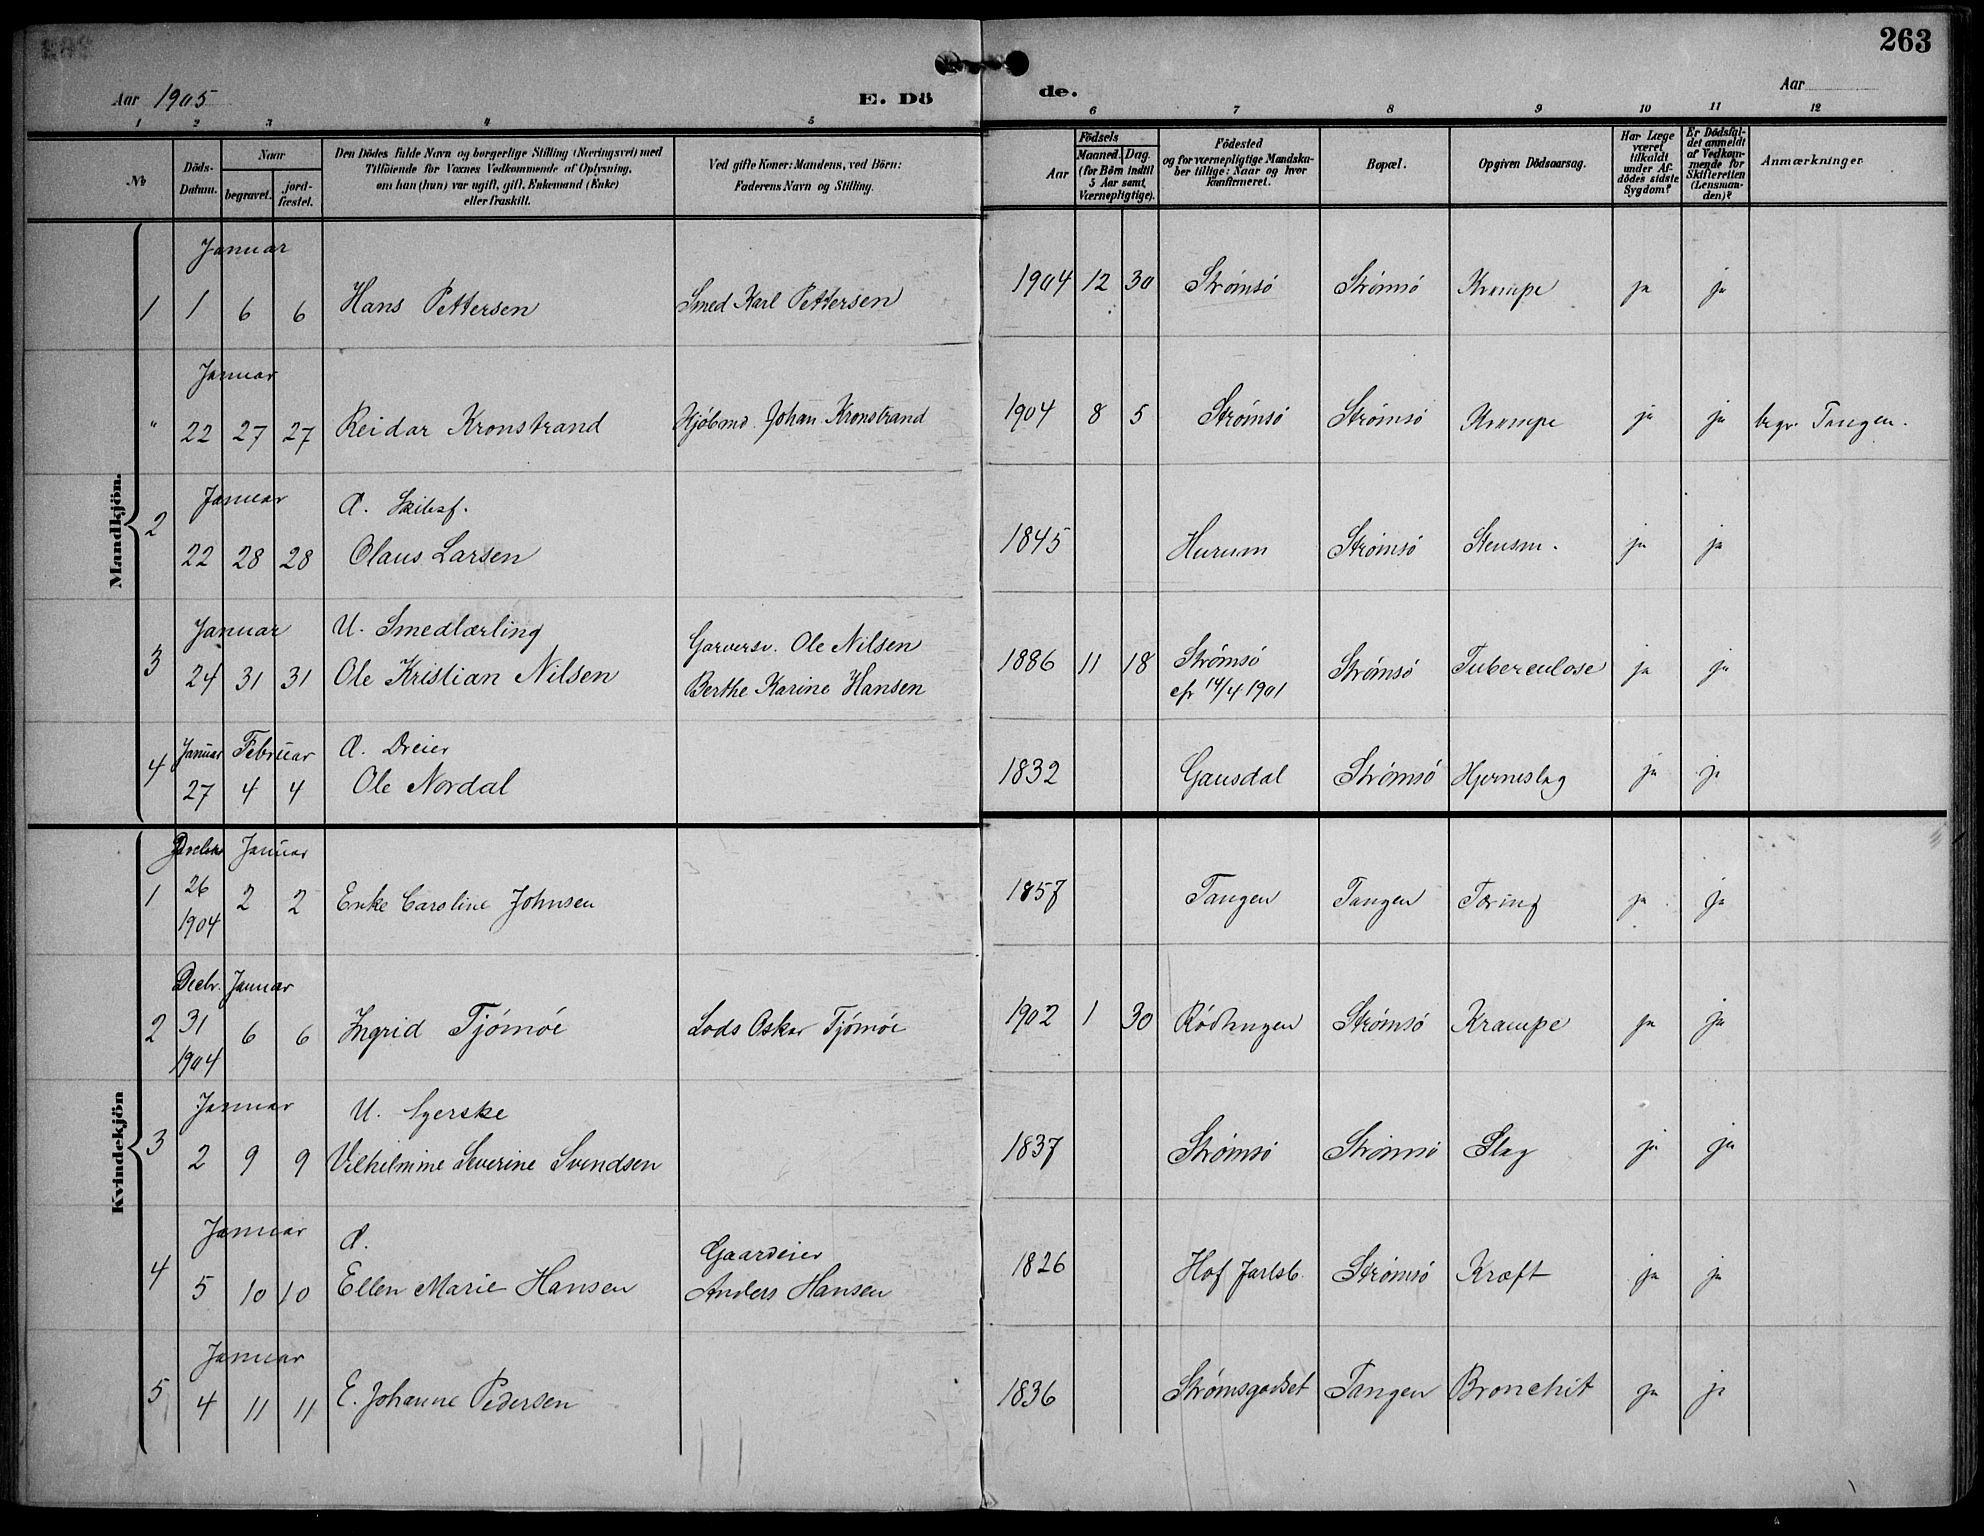 263
Aar 1905 E. Dö de. Aar
1 2 3 4 5 6 7 8 9 10 11 12
No
Döds-
Datum.
Naar
begravet.
jord-
fæstet.
Den Dödes fulde Navn og borgerlige Stilling (Næringsvei) med
Tilföiende for Voxnes Vedkommende af Oplysning,
om han (hun) var ugift, gift, Enkemand (Enke)
eller fraskilt.
Ved gifte Koner: Mandens, ved Börn:
Faderens Navn og Stilling.
Födsels
Aar
Maaned. Dag.
(for Börn indtil
5 Aar samt
Værnepligtige).
Födested
og for værnepligtige Mandska-
ber tillige: Naar og hvor
konfirmeret.
Bopæl.
Opgiven Dödsaarsag.
Har Læge
været
tilkaldt
under Af-
dödes sidste
Sygdom?
Er Dödsfal-
det anmeldt
af Vedkom-
mende for
Skifteretten
(Lensman-
den)?
Anmærkninger
Mandkjön.
Januar
1 1 6 6 Hans Pettersen Smed Karl Pettersen 1904 12 30 Strømsö Strømsö Krampe ja ja
Januar
" 22 27 27 Reidar Kronstrand Johan Kronstrand 1904 8 5 Strømsö Strømsö Krampe ja ja begr. Tangen.
Januar
2 22 28 28 Olaus Larsen 1845 Hurum Strømsö ja ja
Januar U. Smedlærling
3 24 31 31 Ole Kristian Nilsen Garversv. Ole Nilsen
Berthe Karine Hansen 1886 11 18 Strømsö
cfr 14/4 1901 Strømsö Tuberculose ja ja
Januar Februar Dreier
4 27 4 4 Ole Nordal 1832 Gausdal Strømsö Hjerneslag ja ja
Kvindekjön
Januar
1 26 2 2 Enke Caroline Johnsen 1857 Tangen Tangen Tæring ja ja
1904
Decbr. Januar
2 31 6 6 Ingrid Tjømöe Lods Oskar Tjømöe 1902 1 30 Rödtangen Strømsö Krampe ja ja
1904
Januar U. Syerske
3 2 9 9 Vilhelmine Severine Svendsen 1837 Strømsö Strømsö Slag ja ja
Januar
4 5 10 10 Ellen Marie Hansen Gaardeier
Anders Hansen 1826 Hof Jarlsb. Strømsö Kræft ja ja
Januar
5 4 11 11 E. Johanne Pedersen 1836 Strømsgodset Tangen Bronchit ja ja